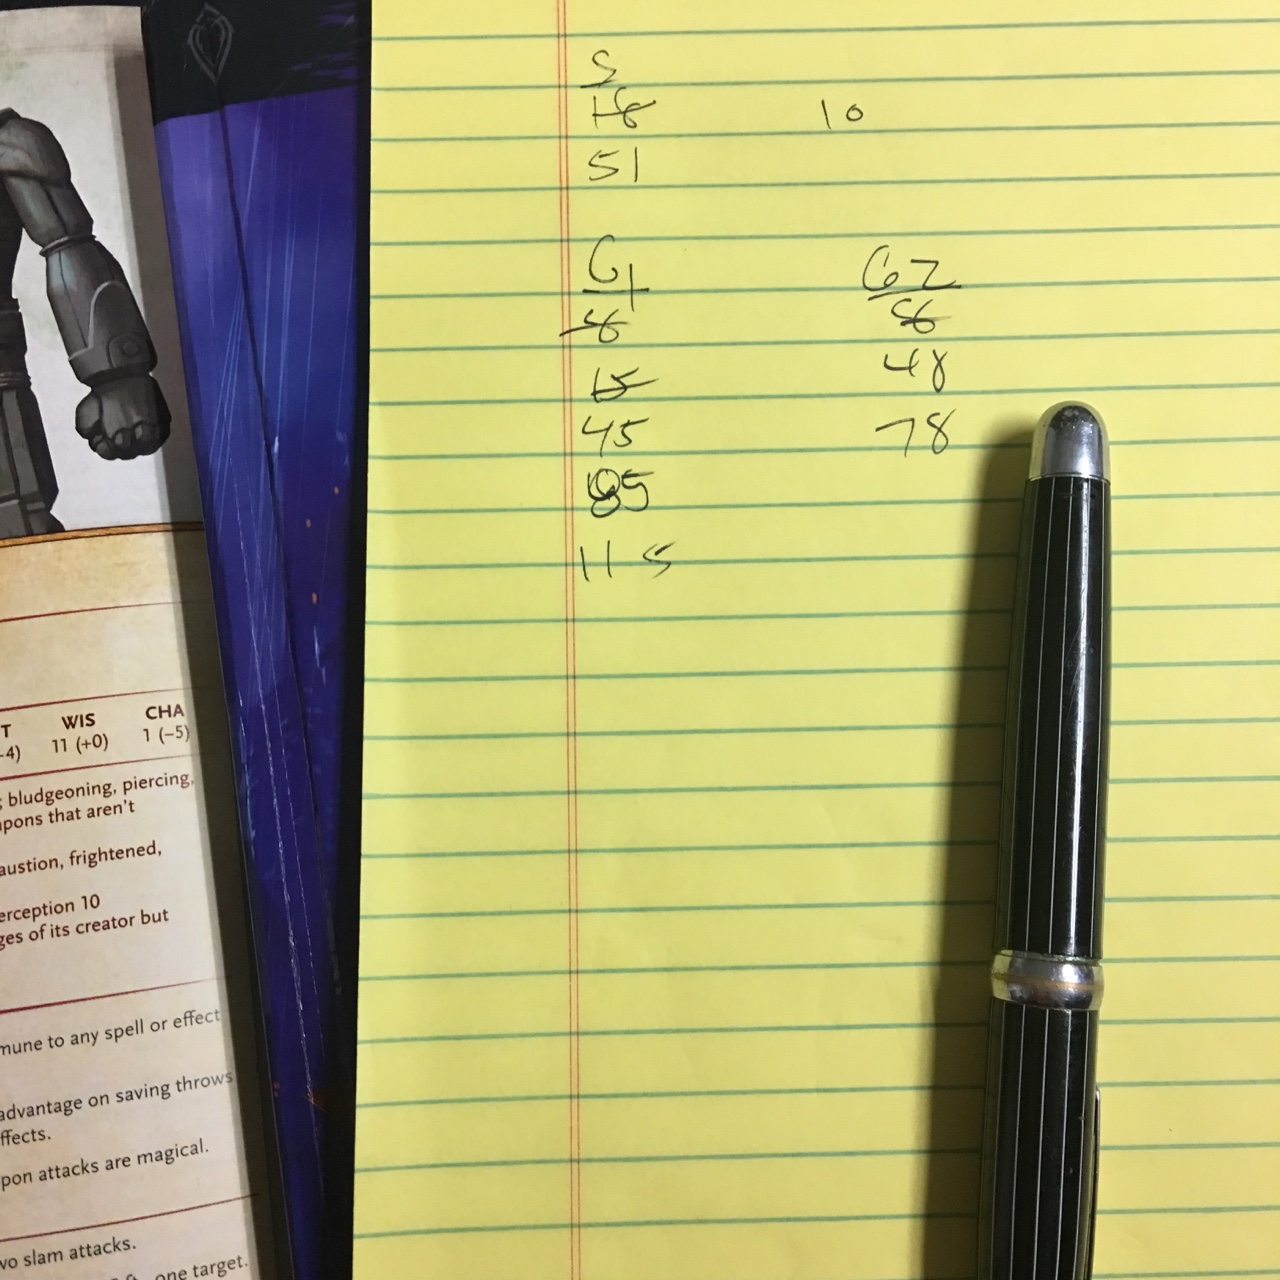 S
18
10
51
G1
8
15
45
85
115
G2
56
48
78
T WIS CHA
-4) 11 (+0) 1 (–5)
; bludgeoning, piercing,
pons that aren't
austion, frightened,
erception 10
ges of its creator but
mune to any spell or effect
advantage on saving throws
ffects.
pon attacks are magical.
wo slam attacks.
one target.